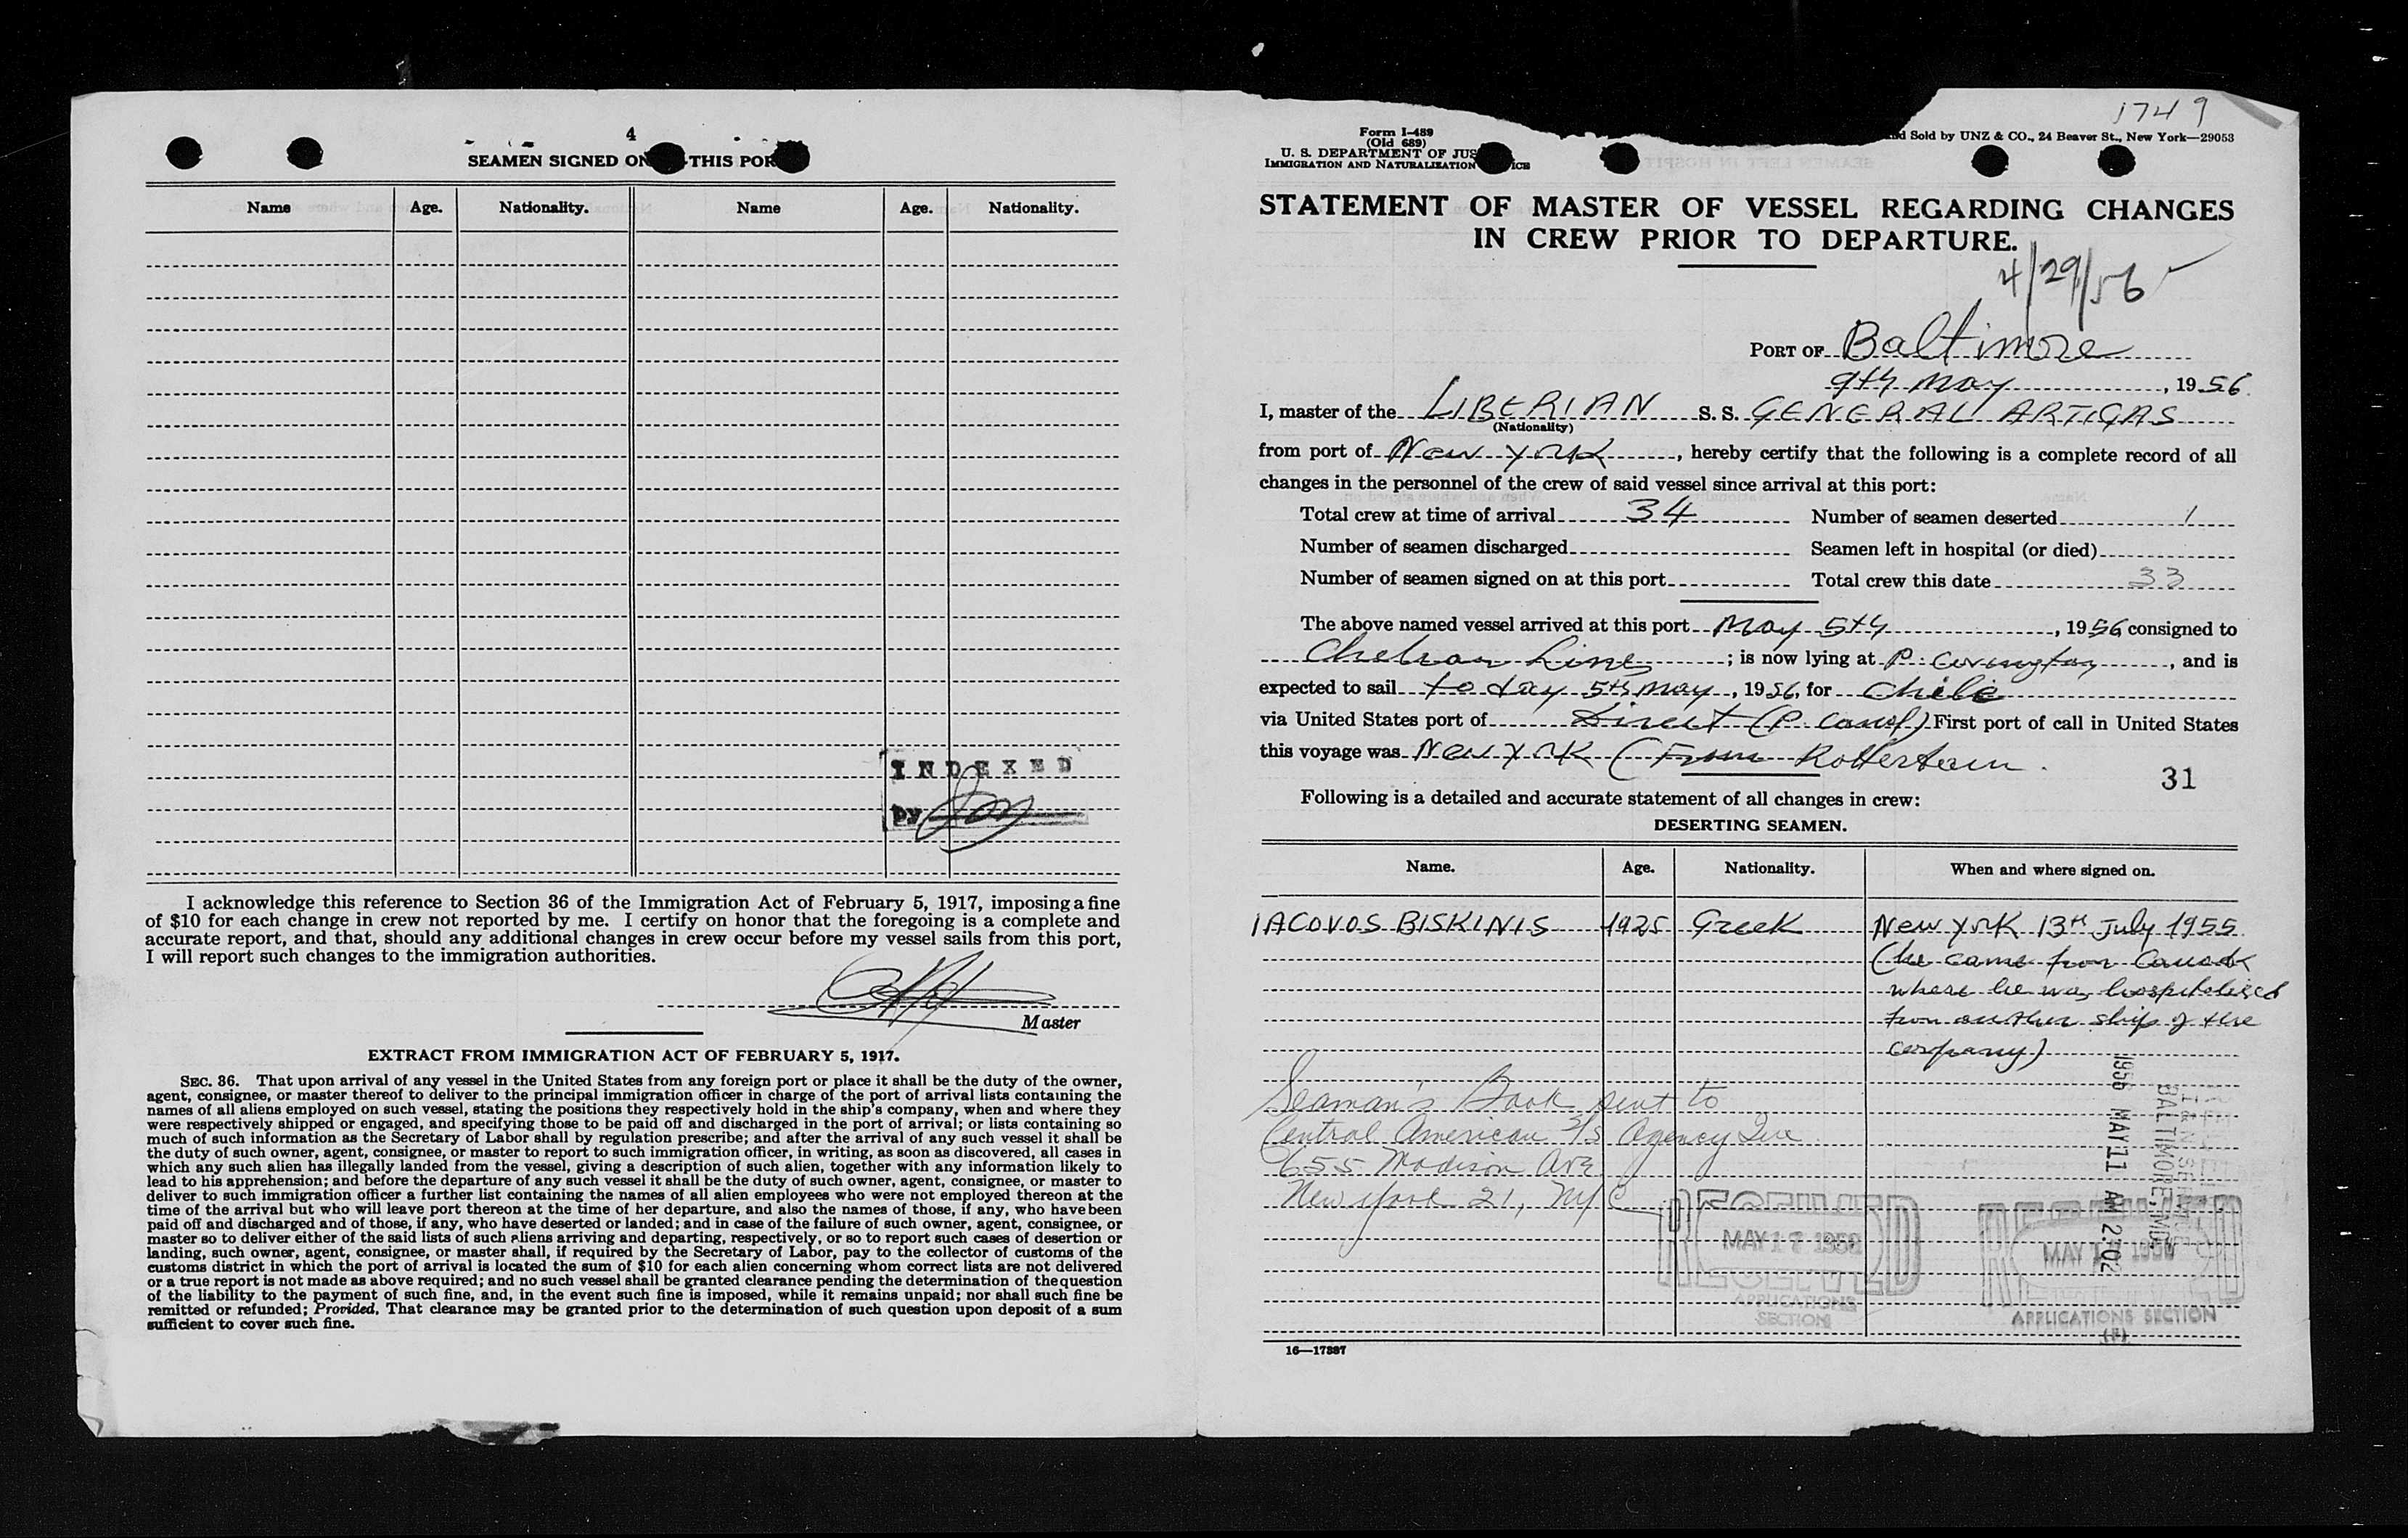 4
SEAMEN SIGNED ON THIS POR
Name Age. Nationality. Name Age. Nationality.
INDEXED
by
I acknowledge this reference to Section 36 of the Immigration Act of February 5, 1917, imposing a fine
of $10 for each change in crew not reported by me. I certify on honor that the foregoing is a complete and
accurate report, and that, should any additional changes in crew occur before my vessel sails from this port,
I will report such changes to the immigration authorities.
Master
EXTRACT FROM IMMIGRATION ACT OF FEBRUARY 5, 1917.
SEC. 36. That upon arrival of any vessel in the United States from any foreign port or place it shall be the duty of the owner,
agent, consignee, or master thereof to deliver to the principal immigration officer in charge of the port of arrival lists containing the
names of all aliens employed on such vessel, stating the positions they respectively hold in the ship's company, when and where they
were respectively shipped or engaged, and specifying those to be paid off and discharged in the port of arrival; or lists containing so
much of such information as the Secretary of Labor shall by regulation prescribe; and after the arrival of any such vessel it shall be
the duty of such owner, agent, consignee, or master to report to such immigration officer, in writing, as soon as discovered, all cases in
which any such alien has illegally landed from the vessel, giving a description of such alien, together with any information likely to
lead to his apprehension; and before the departure of any such vessel it shall be the duty of such owner, agent, consignee, or master to
deliver to such immigration officer a further list containing the names of all alien employees who were not employed thereon at the
time of the arrival but who will leave port thereon at the time of her departure, and also the names of those, if any, who have been
paid off and discharged and of those, if any, who have deserted or landed; and in case of the failure of such owner, agent, consignee, or
master so to deliver either of the said lists of such aliens arriving and departing, respectively, or so to report such cases of desertion or
landing, such owner, agent, consignee, or master shall, if required by the Secretary of Labor, pay to the collector of customs of the
customs district in which the port of arrival is located the sum of $10 for each alien concerning whom correct lists are not delivered
or a true report is not made as above required; and no such vessel shall be granted clearance pending the determination of the question
of the liability to the payment of such fine, and, in the event such fine is imposed, while it remains unpaid; nor shall such fine be
remitted or refunded; Provided, That clearance may be granted prior to the determination of such question upon deposit of a sum
sufficient to cover such fine.
1749
Form I-489
(Old 689)
U. S. DEPARTMENT OF JUS
IMMIGRATION AND NATURALIZATION ICE
Sold by UNZ & CO., 24 Beaver St., New York—29053
STATEMENT OF MASTER OF VESSEL REGARDING CHANGES
IN CREW PRIOR TO DEPARTURE.
4/29/56
PORT OF Baltimore
9th May, 1956
I, master of the LIBERIAN S. S. GENERAL ARTIGAS
(Nationality)
from port of New York, hereby certify that the following is a complete record of all
changes in the personnel of the crew of said vessel since arrival at this port:
Total crew at time of arrival 34 Number of seamen deserted 1
Number of seamen discharged Seamen left in hospital (or died)
Number of seamen signed on at this port Total crew this date 33
The above named vessel arrived at this port May 5th, 1956 consigned to
Line; is now lying at P. Covington, and is
expected to sail to day 5th May, 1956, for Chile
via United States port of Direct (P. Canal) First port of call in United States
this voyage was New York (From Rotterdam.
31
Following is a detailed and accurate statement of all changes in crew:
DESERTING SEAMEN.
Name. Age. Nationality. When and where signed on.
IACOVOS BISKINIS 1925 Greek New York 13th July 1955
(he came from Canada
where he was hospitalised
from another ship of the
company)
Seaman's Book sent to
Central American S/S Agency Inc
655 Madison Ave
New York 21, NYC
RECEIVED
MAY 17 1956
RECEIVED
APPLICATIONS
SECTION
1956 MAY 11 AM 2:02
BALTIMORE, MD.
MAY
APPLICATIONS SECTION
16—17387